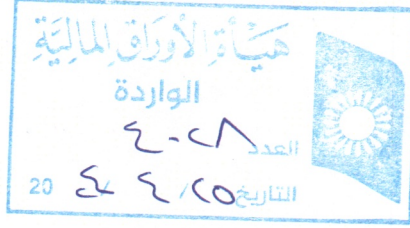 هيأة الأوراق المالية
الواردة
العدد ٤٠٢٨
التاريخ ٢٥/ ٤ / ٢٤ 20